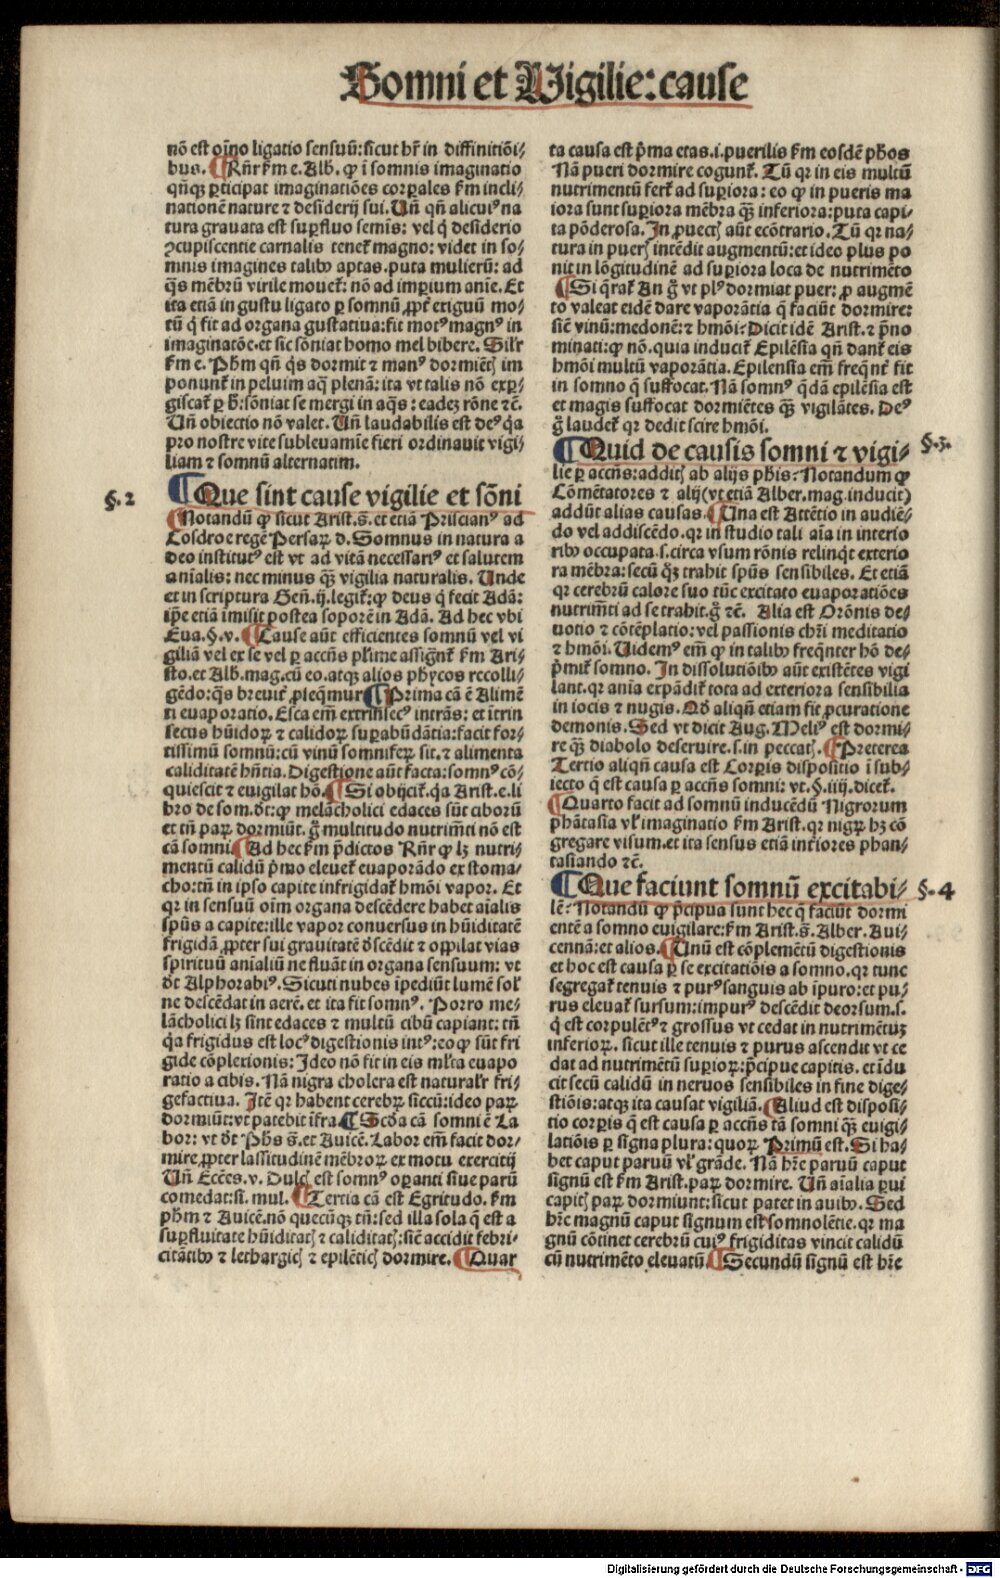 Somni et Uigilie: cause
nō est oīno ligatio sensuū: sicut hr̄ in diffinitiōi⸗
bus. ¶ Rn̄r ẜm e. Alb. ꝙ ī somnis imaginatio
qn̄qꝫ ꝑticipat imaginatiōes corꝑales ẜm incli⸗
nationē nature ⁊ desiderij sui. Un̄ qn̄ alicuiꝰ na
tura grauata est suꝑfluo semis: vel q̄ desiderio
ꝯcupiscentie carnalis tenet᷑ magno: videt in so⸗
mnis imagines talibꝰ aptas. puta mulierū: ad
q̄s mēbrū virile mouet᷑: nō ad imꝑium anīe. Et
ita etiā in gustu ligato ꝑ somnū ꝓpt᷑ exiguū mo⸗
tū q̇ fit ad organa gustatiua: fit motꝰ magnꝰ in
imaginatōe. et sic sōniat homo mel bibere. Sil̄r
ẜm e. Ph̄m qn̄ q̇s dormit ⁊ manꝰ dormiētꝭ im
ponunt᷑ in peluim aq̄ plenā: ita vt talis nō exꝑ⸗
giscat᷑ ꝑ ƀ: sōniat se mergi in aq̄s: eadeꝫ rōne ⁊c̄.
Un̄ obiectio nō valet. Un̄ laudabilis est deꝰ q̇a
pro nostre vite subleuamīe fieri ordinauit vigi⸗
liam ⁊ somnū alternatim.
§. 2
¶ Que sint cause vigilie et sōni
¶ Notandū ꝙ sicut Arist. s̄. et etiā Priscianꝰ ad
Cosdroe regē Persaꝝ d. Somnus in natura a
deo institutꝰ est vt ad vitā necessariꝰ et salutem
anīalis: nec minus qꝫ̄ vigilia naturalis. Unde
et in scriptura Gen̄. ij. legit᷑: ꝙ deus q̇ fecit Adā:
ip̄e etiā imisit postea soporē in Adā. Ad hec vbi
Eua. §. v. ¶ Cause aūt efficientes somnū vel vi
giliā vel ex se vel ꝑ accn̄s pl̄ime assignt᷑ ẜm Ari⸗
sto. et Alb. mag. cū eo. atqꝫ alios phȳcos recolli⸗
gēdo: q̄s breuit᷑ ꝓseq̄mur ¶ Prima cā ē Alimē
ti euaporatio. Esca em̄ extrinsecꝰ intrās: et ītrin
secus hūidoꝝ ⁊ calidoꝝ suꝑabūdātia: facit for⸗
tissimū somnū: cū vinū somniferꝝ sit. ⁊ alimenta
caliditatē hn̄tia. Digestione aūt facta: somnꝰ cō⸗
quiescit ⁊ euigilat hō. ¶ Si obijcit᷑. q̇a Arist. e. li
bro de som. d̄t: ꝙ melācholici edaces sūt ciborū
et tn̄ paꝝ dormiūt. g̊ multitudo nutrim̄ti nō est
cā somni. ¶ Ad hec ẜm p̄dictos Rn̄r ꝙ lꝫ nutri⸗
mentū calidū p̄mo eleuet᷑ euaporādo ex stoma⸗
cho: tn̄ in ipso capite infrigidat᷑ hmōi vapor. Et
qr in sensuū oīm organa descēdere habet aīalis
spūs a capite: ille vapor conuersus in hūiditatē
frigidā ꝓpter sui grauitatē dscēdit ⁊ oppilat vias
spirituū anīaliū ne fluāt in organa sensuum: vt
d̄t Alphorabiꝰ. Sicuti nubes īpediūt lumē sol᷑
ne descēdat in aerē. et ita fit somnꝰ. Porro me⸗
lācholici lꝫ sint edaces ⁊ multū cibū capiant: tn̄
q̇a frigidus est locꝰ digestionis intꝰ: eo ꝙ sūt fri
gide cōplexionis: Ideo nō fit in eis ml̄ta euapo
ratio a cibis. Nā nigra cholera est natural᷑r fri⸗
gefactiua. Itē qr habent cerebꝝ siccū: ideo paꝝ
dormiūt: vt patebit īfra. ¶ Scd̄a cā somni ē La
bor: vt d̄t Ph̄s s̄. et Auicē. Labor em̄ facit dor⸗
mire ꝓpter lassitudinē mēbroꝝ ex motu exercitij
Un̄ Ecc̄es. v. Dulcꝭ est somnꝰ oꝑanti siue parū
comedat: si. mul. ¶ Tertia cā est Egritudo. ẜm
ph̄m ⁊ Auicē. nō quecūqꝫ tn̄: sed illa sola q̄ est a
suꝑfluitate hūiditatꝭ ⁊ caliditatꝭ: sic̄ accidit febri⸗
citātibꝰ ⁊ lethargicꝭ ⁊ epilēticꝭ dormire. ¶ Quar
ta causa est p̄ma etas. i. puerilis ẜm eosdē ph̄os
Nā pueri dormire cogunt᷑. Tū qr in eis multū
nutrimentū fert᷑ ad suꝑiora: eo ꝙ in pueris ma
iora sunt suꝑiora mēbra qꝫ̄ inferiora: puta capi⸗
ta pōderosa. In ꝓuectꝭ aūt ecōtrario. Tū qr na⸗
tura in puerꝭ intēdit augmentū: et ideo plus po
nit in lōgitudinē ad suꝑiora loca de nutrimēto
¶ Si q̄rat᷑ An g̊ vt plꝰ dormiat puer: ꝓ augmē
to valeat eidē dare vaporātia q̄ faciūt dormire:
sic̄ vinū: medonē: ⁊ hmōi: Dicit idē Arist. ⁊ p̄no
minati: ꝙ nō. quia inducit᷑ Epilēsia qn̄ dant᷑ eis
hmōi multū vaporātia. Epilensia em̄ freqn̄t᷑ fit
in somno q̄ suffocat. Nā somnꝰ q̇dā epilēsia est
et magis suffocat dormiētes qꝫ̄ vigilātes. Deꝰ
g̊ laudet᷑ qr dedit scire hmōi.
§. 3.
¶ Quid de causis somni ⁊ vigi⸗
lie ꝑ accn̄s: additꝭ ab alijs ph̄is: Notandum ꝙ
Cōmētatores ⁊ alij (vt etiā Alber. mag. inducit)
addūt alias causas. ¶ Una est Attētio in audiē⸗
do vel addiscēdo. qr in studio tali aīa in interio
ribꝰ occupata. s. circa vsum rōnis relinq̇t exterio
ra mēbra: secū qꝫ trahit spūs sensibiles. Et etiā
qr cerebrū calore suo tūc excitato euaporatiōes
nutrim̄ti ad se trahit. g̊ ⁊c̄. Alia est Orōnis de⸗
uotio ⁊ cōtēplatio: vel passionis chr̄i meditatio
⁊ hmōi. Uidemꝰ em̄ ꝙ in talibꝰ freq̄nter hō de⸗
p̄mit᷑ somno. In dissolutiōibꝰ aūt existētes vigi
lant. qr anīa expādit᷑ tota ad exteriora sensibilia
in iocis ⁊ nugis. Qd̄ aliqn̄ etiam fit ꝓcuratione
demonis. Sed vt dicit Aug. Meliꝰ est dormi⸗
re qꝫ̄ diabolo deseruire. s. in peccatꝭ. ¶ Preterea
Tertio aliqn̄ causa est Corꝑis dispositio ī sub⸗
iecto q̄ est causa ꝑ accn̄s somni: vt. §. iiij. dicet᷑.
¶ Quarto facit ad somnū inducēdū Nigrorum
phātasia vl̓ imaginatio ẜm Arist. qr nigꝝ hꝫ cō
gregare visum. et ita sensus etiā int᷑iores phan⸗
tasiando ⁊c̄.
§. 4
¶ Que faciunt somnū excitabi⸗
lē: Notandū ꝙ p̄cipua sunt hec q̄ faciūt dormi
entē a somno euigilare: ẜm Arist. s̄. Alber. Aui⸗
cennā: et alios. ¶ Unū est cōplemētū digestionis
et hoc est causa ꝑ se excitatiōis a somno. qr tunc
segregat᷑ tenuis ⁊ purꝰ sanguis ab īpuro: et pu⸗
rus eleuat᷑ sursum: impurꝰ descēdit deorsum. s.
q̇ est corpulētꝰ ⁊ grossus vt cedat in nutrimētuꝫ
inferioꝝ. sicut ille tenuis ⁊ purus ascendit vt ce
dat ad nutrimētū suꝑioꝝ: p̄cipue capitis. et īdu
cit secū calidū in neruos sensibiles in fine dige⸗
stiōis: atqꝫ ita causat vigiliā. ¶ Aliud est disposi⸗
tio corꝑis q̄ est causa ꝑ accn̄s tā somni qꝫ̄ euigi⸗
latiōis ꝑ signa plura: quoꝝ Primū est. Si ha⸗
bet caput paruū vl̓ grāde. Nā hr̄e paruū caput
signū est ẜm Arist. paꝝ dormire. Un̄ aīalia ꝑui
capitꝭ paꝝ dormiunt: sicut patet in auibꝰ. Sed
hr̄e magnū caput signum est somnolētie. qr ma
gnū cōtinet cerebrū cuiꝰ frigiditas vincit calidū
cū nutrimēto eleuatū. ¶ Secundū signū est hr̄e
Digitalisierung gefördert durch die Deutsche Forschungsgemeinschaft - DFG